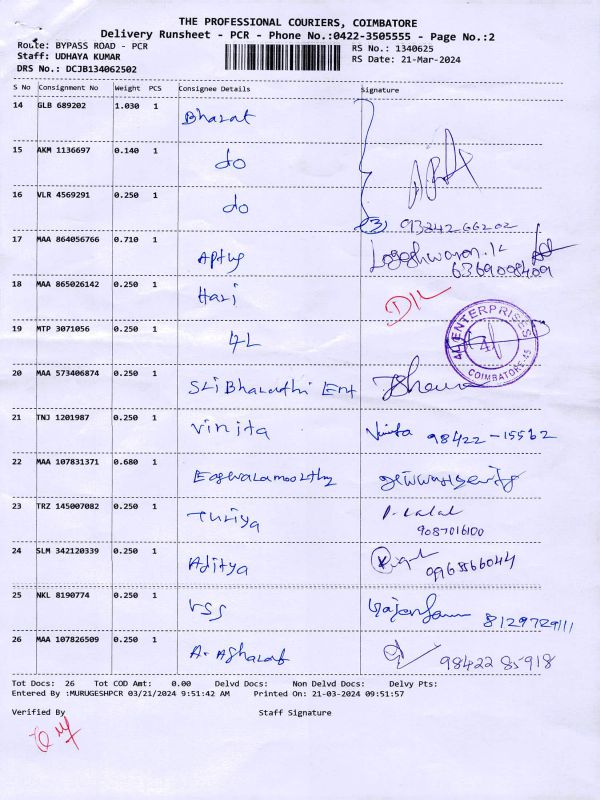 THE PROFESSIONAL COURIERS, COIMBATORE
Delivery Runsheet - PCR - Phone No.:0422-3505555 - Page No.:2
Route: BYPASS ROAD - PCR RS No.: 1340625
Staff: UDHAYA KUMAR RS Date: 21-Mar-2024
DRS No.: DCJB134062502
S No Consignment No Weight PCS Consignee Details Signature
14 GLB 689202 1.030 1 Bharat
15 AKM 1136697 0.140 1 do
16 VLR 4569291 0.250 1 do
(3) 9324266202
17 MAA 864056766 0.710 1 Aptus Logeshwaran.K
6369008409
18 MAA 865026142 0.250 1 Hari
19 MTP 3071056 0.250 1 4L
4L ENTERPRISES
4L
COIMBATORE-45
20 MAA 573406874 0.250 1 Sri Bharathi Ent
21 TNJ 1201987 0.250 1 Vinita Vinita 98422-15562
22 MAA 107831371 0.680 1 Eagwaramoorthy
23 TRZ 145007082 0.250 1 Turiya P. Lalal
9087016100
24 SLM 342120339 0.250 1 Aditya
0968566044
25 NKL 8190774 0.250 1 VSS 8129729111
26 MAA 107826509 0.250 1 A. Asharaf 98422 85918
Tot Docs: 26 Tot COD Amt: 0.00 Delvd Docs: Non Delvd Docs: Delvy Pts:
Entered By :MURUGESHPCR 03/21/2024 9:51:42 AM Printed On: 21-03-2024 09:51:57
Verified By Staff Signature